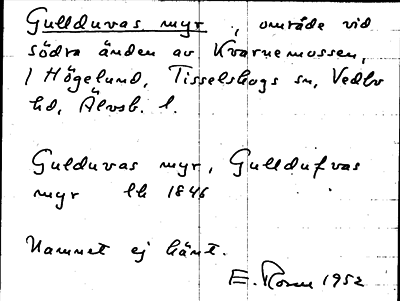 Gullduvas myr, område vid
södra änden av Kvarnemossen,
/ Högelund, Tisselskogs sn, Vedbo
hd, Älvsb. l.
Gulduvas myr, Gulldufvas
myr lk 1846
Namnet ej känt.
E. Rosen 1952